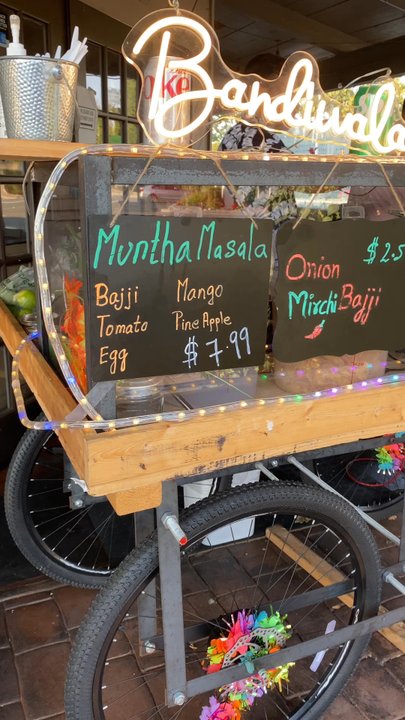 Bandiwala
Muntha Masala
Bajji Mango
Tomato Pine Apple
Egg $7.99
$2.5
Onion
Mirchi Bajji